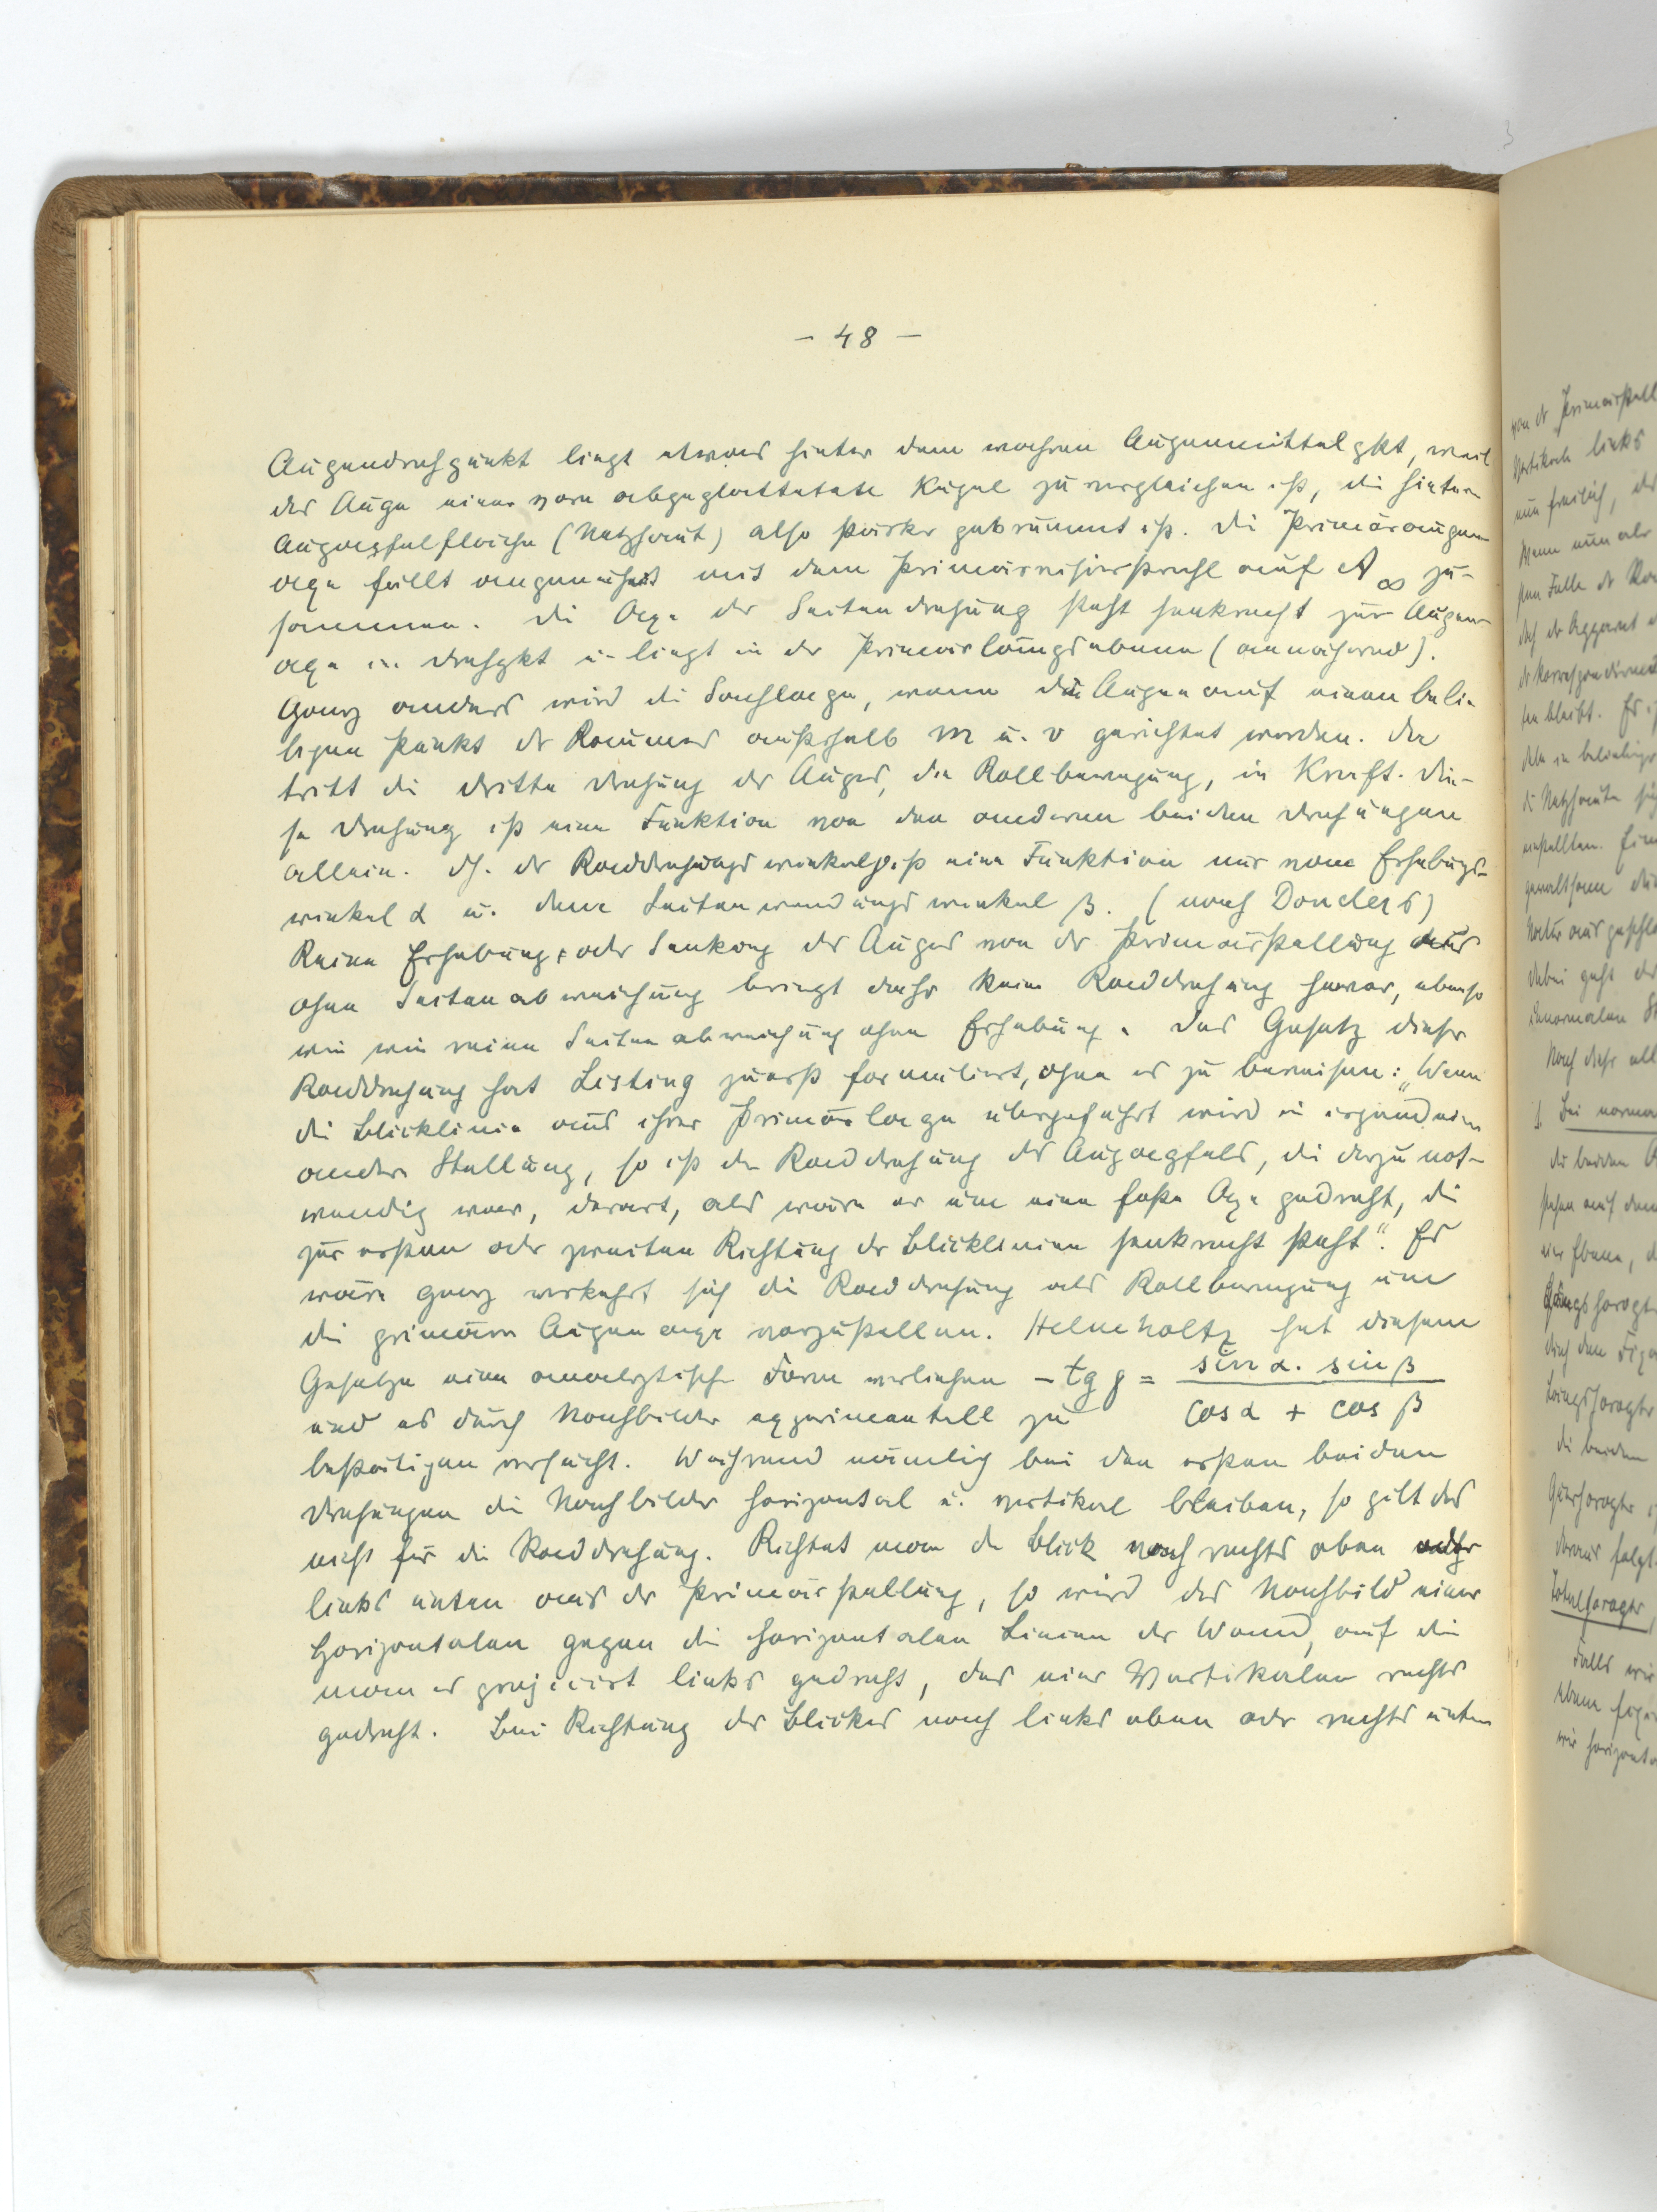 - 48 -
Augendrehpunkt liegt etwas hinter dem wahren Augenmittelpkt, weil
das Auge einer vorn abgeplatteten Kugel zu vergleichen ist, die hintere
Augapfelfläche (Netzhaut) also stärker gekrümmt ist. Die Primäraugen-
axe fällt angenähert mit dem Primärvisierstrahl auf A∞ zu-
sammen. Die Axe der Seitendrehung steht senkrecht zur Augen-
axe im Drehpkt u. liegt in der Primärlängsebene (annähernd).
Ganz anders wird die Sachlage, wenn die Augen auf einen belie-
bigen Punkt des Raumes außerhalb m u. v gerichtet werden. Da
tritt die dritte Drehung des Auges, die Rollbewegung, in Kraft. Die-
se Drehung ist eine Funktion von den anderen beiden Drehungen
allein. dh. der Raddrehungswinkel ρ ist eine Funktion nur vom Erhebungs-
winkel α u. dem Seitenwendungswinkel β. (nach Donders)
Reine Erhebung oder Senkung des Auges von der Primärstellung aus
ohne Seitenabweichung bringt daher keine Raddrehung hervor, ebenso
wie wie reine Seitenabweichung ohne Erhebung. Das Gesetz dieser
Raddrehung hat Listing zuerst formuliert, ohne es zu beweisen: „Wenn
die Blicklinie aus ihrer Primärlage übergeführt wird in irgend eine
andere Stellung, so ist die Raddrehung des Augapfels, die dazu not-
wendig war, derart, als wäre er um eine feste Axe gedreht, die
zur ersten oder zweiten Richtung der Blicklinien senkrecht steht". Es
wäre ganz verkehrt sich die Raddrehung als Rollbewegung um
die primäre Augenaxe vorzustellen. Helmholtz hat diesem
Gesetze eine analytische Form verliehen - tg ρ = sin α. sin β / cos α + cos β
und es durch Nachbilder experimentell zu
bestätigen versucht. Während nämlich bei den ersten beiden
Drehungen die Nachbilder horizontal u. vertikal bleiben, so gilt das
nicht für die Raddrehung. Richtet man den Blick nach rechts oben oder
links unten aus der Primärstellung, so wird das Nachbild einer
Horizontalen gegen die horizontalen Linien der Wand, auf die
man es projiciert links gedreht, das einer Vertikalen rechts
gedreht. Bei Richtung des Blickes nach links oben oder rechts unten